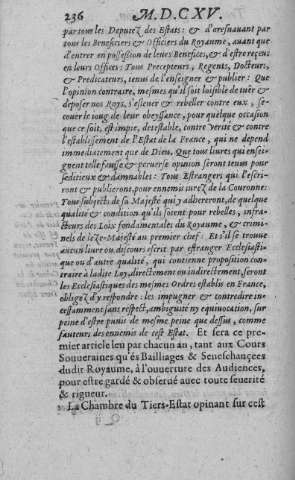 236 M. D. C XV.
par tous les Deputez des Estats: & d'oresnauant par
tous les Beneficiers & Officiers du Royaume, auant que
d'entrer en possession de leurs Benefices, & d'estre reçeus
en leurs Offices: Tous Precepteurs, Regents, Docteurs,
& Predicateurs, tenus de l'enseigner & publier: Que
l'opinion contraire, mesmes qu'il soit loisible de tuër &
deposer nos Roys, s'esleuer & rebeller contre eux, se-
couer le ioug de leur obeyssance, pour quelque occasion
que ce soit, est impie, detestable, contre Verité & contre
l'establissement de l'Estat de la France, qui ne depend
immediatement que de Dieu, Que tous liures qui ensei-
gnent telle fausse & peruerse opinion seront tenus pour
seditieux & damnables: Tous Estrangers qui l'escri-
ront & publieront, pour ennemis iurez de la Couronne:
Tous subjects de sa Majesté qui y adhereront, de quelque
qualité & condition qu'ils soient, pour rebelles, infra-
cteurs des Loix fondamentales du Royaume, & crimi-
nels de leze-Majesté au premier chef: Et s'il se trouue
aucun liure ou discours escrit par estranger Ecclesiasti-
que ou d'autre qualité, qui contienne proposition con-
traire à ladite Loy, directement ou indirectement, seront
les Ecclesiastiques des mesmes Ordres establis en France,
obligez d'y respondre: les impugner & contredire in-
cessamment sans respect, ambiguité ny equiuocation, sur
peine d'estre punis de mesme peine que dessus, comme
fauteurs des ennemis de cest Estat. Et sera ce pre-
mier article leu par chacun an, tant aux Cours
Souueraines qu'és Bailliages & Seneschançees
dudit Royaume, à l'ouuerture des Audiences,
pour estre gardé & obserué auec toute seuerité
& rigueur.
La Chambre du Tiers-Estat opinant sur cest